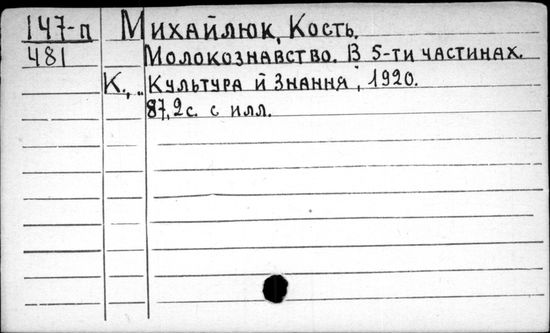 147-п Михайлюк, Кость.
481 Молокознавство. В 5-ти частинах.
К., „Культура й Знання", 1920.
87,2с. с илл.